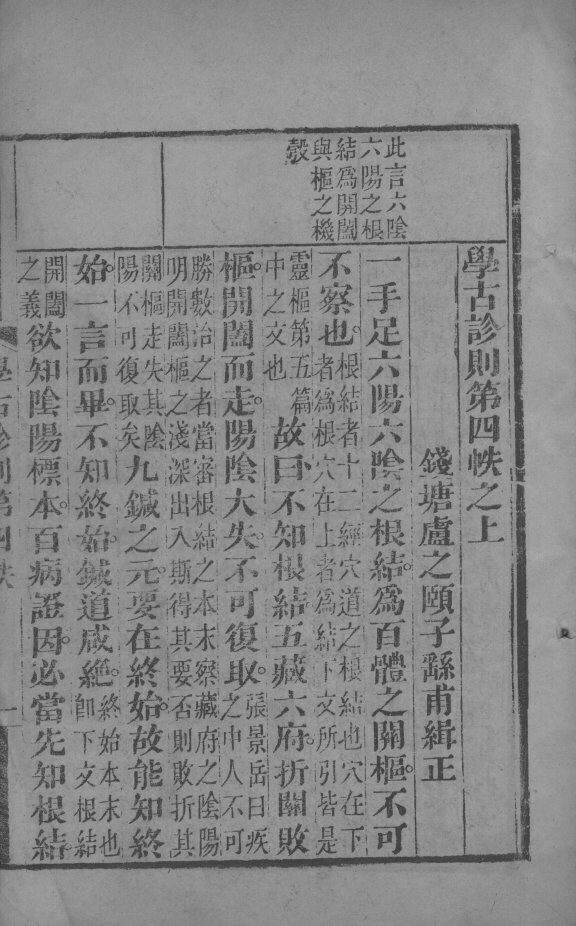 此言六陰
六陽之根
結爲開闔
與樞之機
彀
學古診則第四帙之上
錢塘盧之頤子繇甫緝正
一手足六陽六陰之根結。爲百體之關樞。不可
不察也。根結者十二經穴道之根結也穴在下
者爲根穴在上者爲結下文所引皆是
靈樞第五篇
中之文也
故曰不知根結五藏六府。折關敗
樞。開闔而走。陽陰大失。不可復取。張景岳曰疾
之中人不可
勝數治之者當審根結之本末察藏府之陰陽
明開闔樞之淺深出入斯得其要否則敗折其
關樞走失其陰
陽不可復取矣
九鍼之元。要在終始。故能知終
始。一言而畢。不知終始。鍼道咸絕。終始本末也
卽下文根結
開闔
之義
欲知陰陽標本。百病證因。必當先知根結。
學古診則第四帙
一